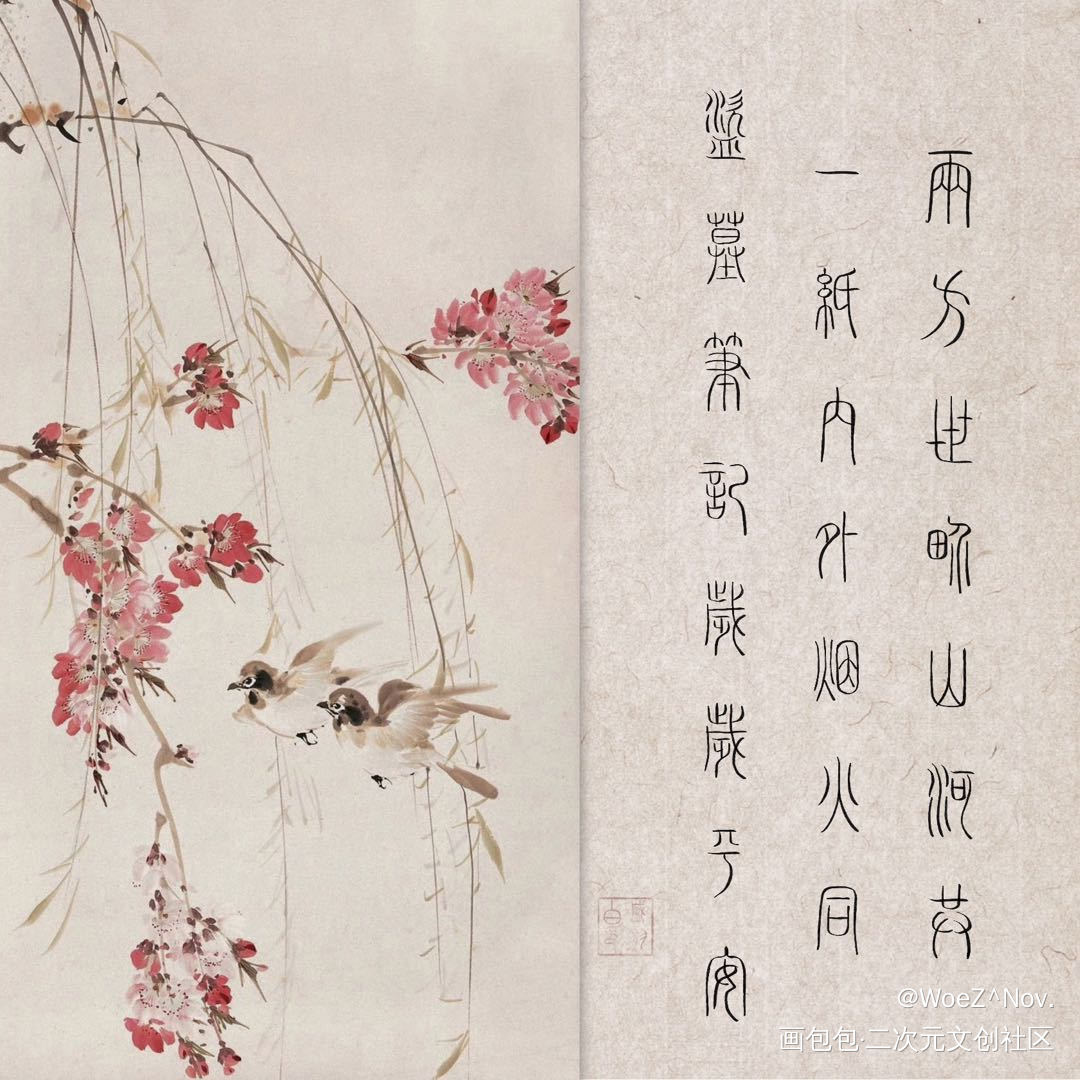 兩方世界山河共
一紙內外烟火同
盜墓筆記歲歲平安
@WoeZ^Nov.
画包包·二次元文创社区